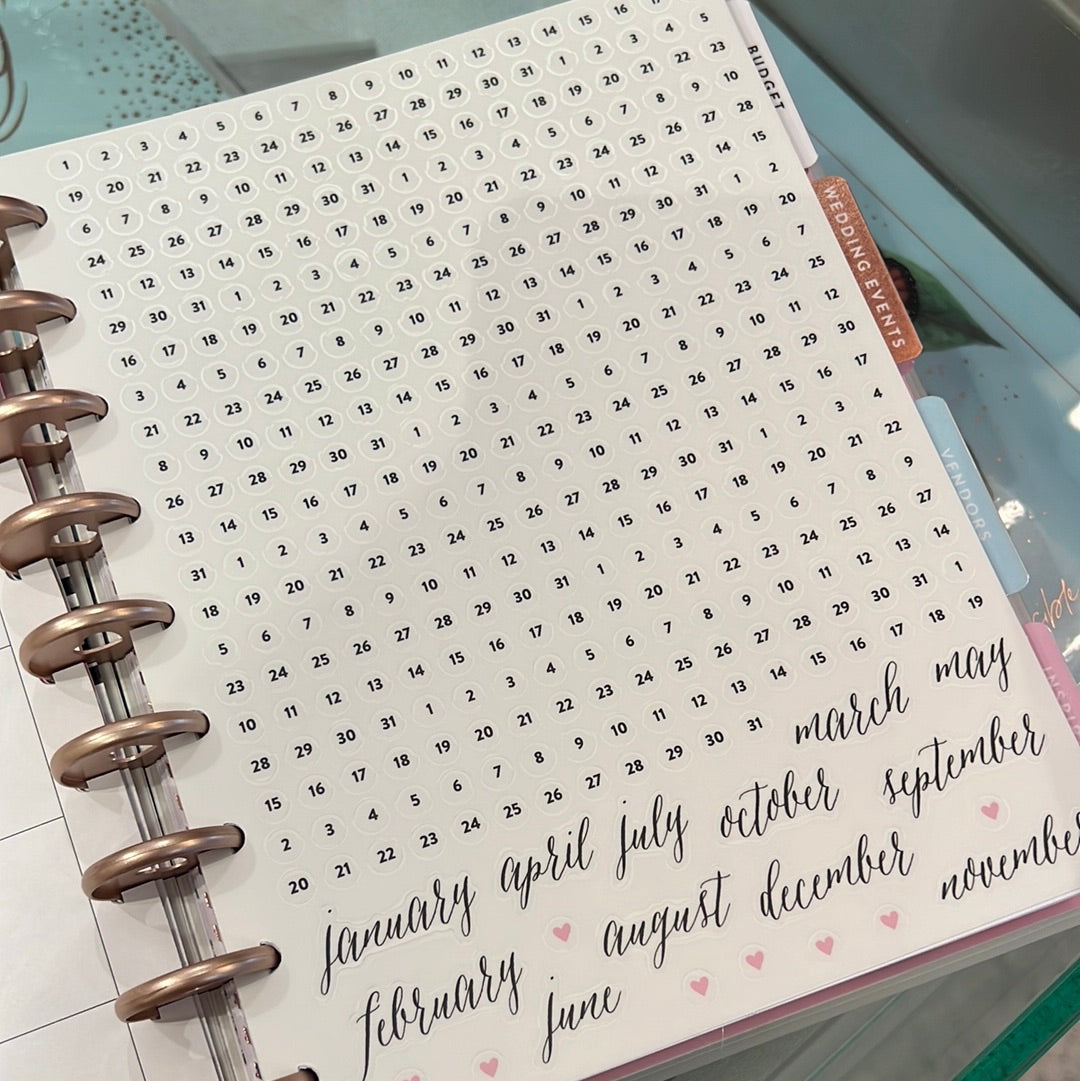 1 2 3 4 5 6 7 8 9 10 11 12 13 14 15 16 17
19 20 21 22 23 24 25 26 27 28 29 30 31 1 2 3 4 5
6 7 8 9 10 11 12 13 14 15 16 17 18 19 20 21 22 23
24 25 26 27 28 29 30 31 1 2 3 4 5 6 7 8 9 10
11 12 13 14 15 16 17 18 19 20 21 22 23 24 25 26 27 28
29 30 31 1 2 3 4 5 6 7 8 9 10 11 12 13 14 15
16 17 18 19 20 21 22 23 24 25 26 27 28 29 30 31 1 2
3 4 5 6 7 8 9 10 11 12 13 14 15 16 17 18 19 20
21 22 23 24 25 26 27 28 29 30 31 1 2 3 4 5 6 7
8 9 10 11 12 13 14 15 16 17 18 19 20 21 22 23 24 25
26 27 28 29 30 31 1 2 3 4 5 6 7 8 9 10 11 12
13 14 15 16 17 18 19 20 21 22 23 24 25 26 27 28 29 30
31 1 2 3 4 5 6 7 8 9 10 11 12 13 14 15 16 17
18 19 20 21 22 23 24 25 26 27 28 29 30 31 1 2 3 4
5 6 7 8 9 10 11 12 13 14 15 16 17 18 19 20 21 22
23 24 25 26 27 28 29 30 31 1 2 3 4 5 6 7 8 9
10 11 12 13 14 15 16 17 18 19 20 21 22 23 24 25 26 27
28 29 30 31 1 2 3 4 5 6 7 8 9 10 11 12 13 14
15 16 17 18 19 20 21 22 23 24 25 26 27 28 29 30 31 1
2 3 4 5 6 7 8 9 10 11 12 13 14 15 16 17 18 19
20 21 22 23 24 25 26 27 28 29 30 31
march may
january april july october september
february august december november
june
BUDGET
WEDDING EVENTS
VENDORS